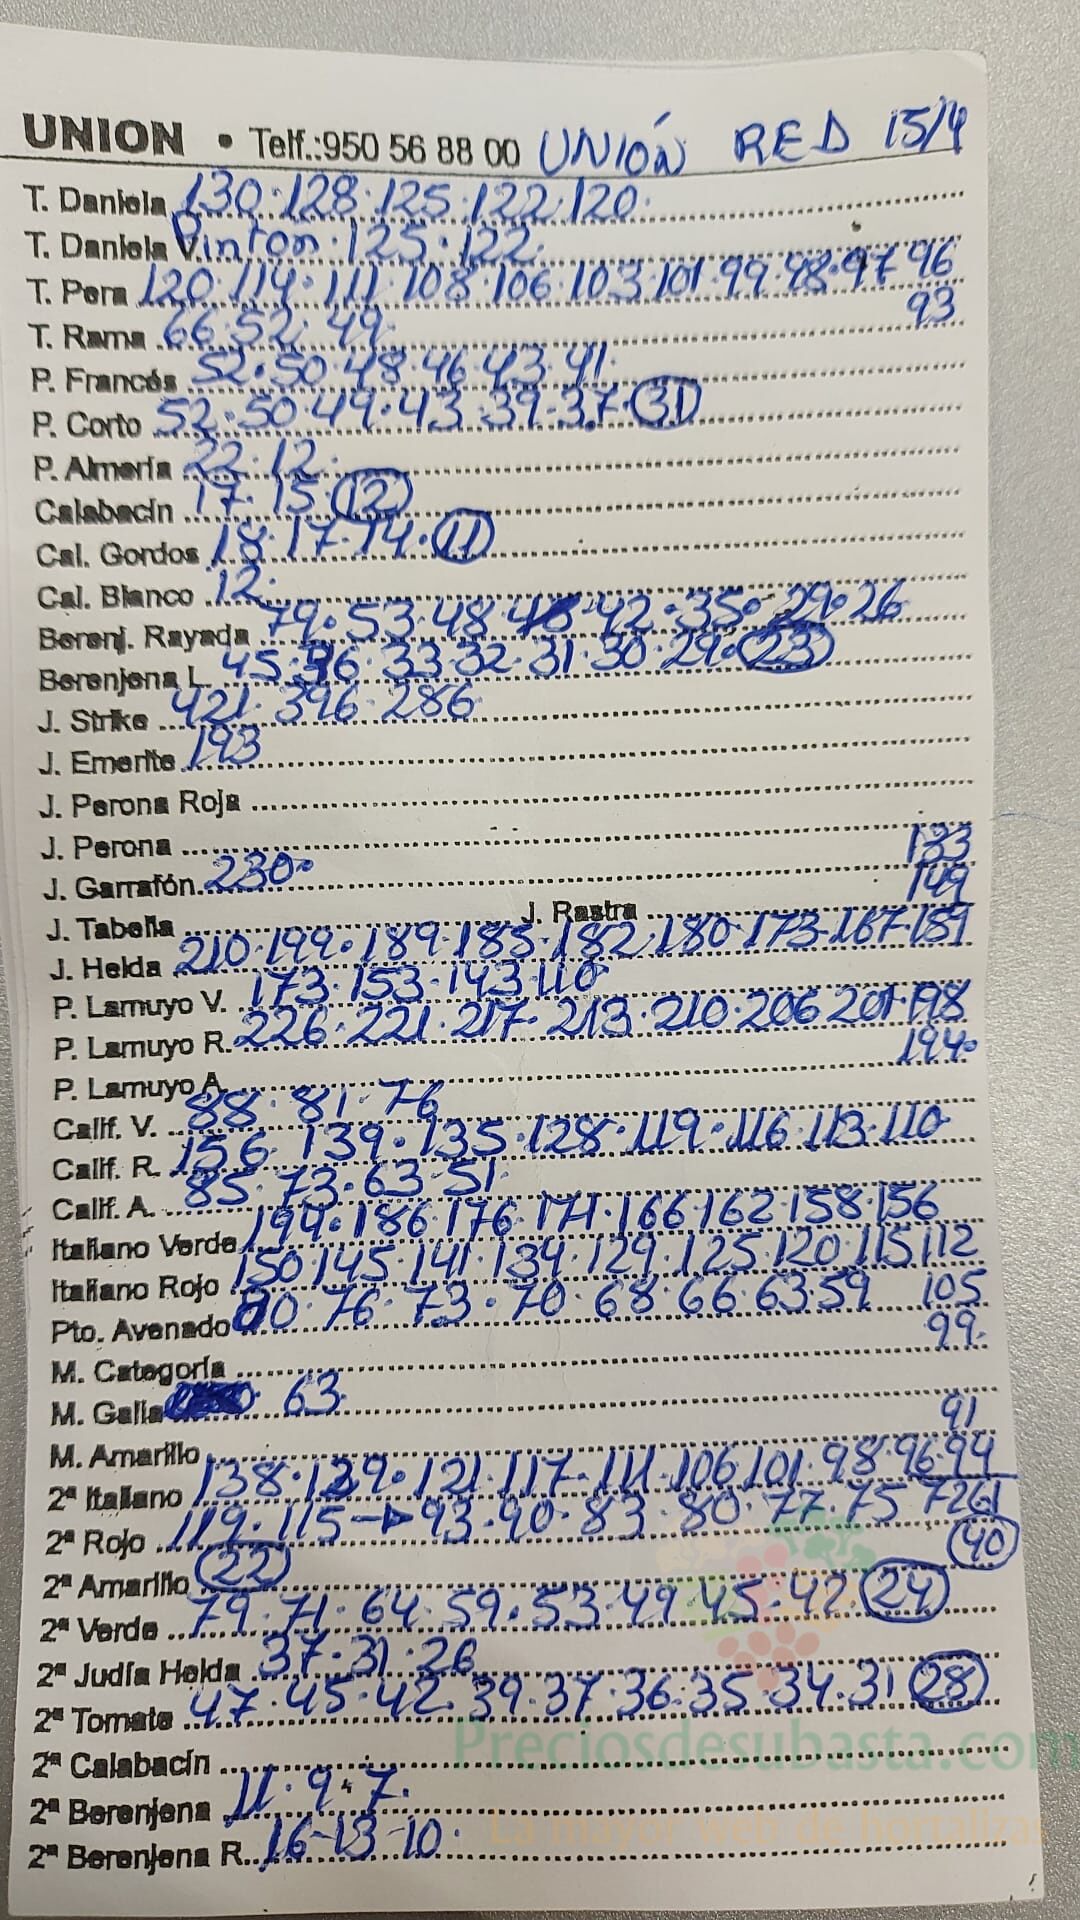 UNION • Telf.:950 56 88 00 UNIÓN RED 15/4
T. Daniela 130·128·125·122·120·
T. Daniela V. Pinton·125·122·
T. Pera 120·114·111·108·106·103·101·99·98·97·96
93
T. Rama 66·52·49·
P. Francés 52·50·48·46·43·41·
P. Corto 52·50·49·43·39·37·31
P. Almería 22·12·
Calabacín 17·15·12
Cal. Gordos 18·17·14·11
Cal. Blanco 12·
Berenj. Rayada 79·53·48·42·35·29·26
Berenjena L. 45·36·33·32·31·30·29·23
J. Strike 421·396·286
J. Emerite 193
J. Perona Roja
J. Perona 133
J. Garrafón 230· 149
J. Tabella J. Rastra
J. Helda 210·199·189·185·182·180·173·167·159
P. Lamuyo V. 173·153·143·110
P. Lamuyo R. 226·221·217·213·210·206·201·198
194·
P. Lamuyo A.
Calif. V. 88·81·76
Calif. R. 156·139·135·128·119·116·113·110
Calif. A. 85·73·63·51·
Italiano Verde 194·186·176·171·166·162·158·156
Italiano Rojo 150·145·141·134·129·125·120·115·112
105
Pto. Avenado 80·76·73·70·68·66·63·59
99·
M. Categoría
M. Galia 63·
91
M. Amarillo
2ª Italiano 138·129·121·117·111·106·101·98·96·94
2ª Rojo 119·115→93·90·83·80·77·75·72·61
40
2ª Amarillo 22
2ª Verde 79·71·64·59·53·49·45·42·24
2ª Judía Helda 37·31·26
2ª Tomate 47·45·42·39·37·36·35·34·31·28
Preciosdesubasta.com
2ª Calabacín
2ª Berenjena 11·9·7·
La mayor web de hortalizas
2ª Berenjena R. 16-13-10·